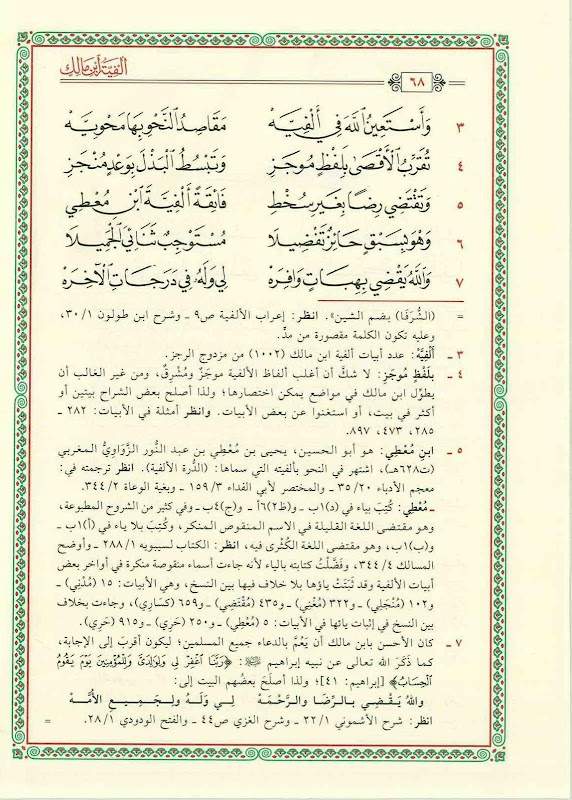 أَلْفِيَّةُ ابْنِ مَالِكٍ
٦٨
٣ وَأَسْتَعِينُ اللَّهَ فِي أَلْفِيَّهْ مَقَاصِدُ النَّحْوِ بِهَا مَحْوِيَّهْ
٤ تُقَرِّبُ الْأَقْصَى بِلَفْظٍ مُوجَزِ وَتَبْسُطُ الْبَذْلَ بِوَعْدٍ مُنْجَزِ
٥ وَتَقْتَضِي رِضًا بِغَيْرِ سُخْطِ فَائِقَةً أَلْفِيَّةَ ابْنِ مُعْطِي
٦ وَهْوَ بِسَبْقٍ حَائِزٌ تَفْضِيلَا مُسْتَوْجِبٌ ثَنَائِيَ الْجَمِيلَا
٧ وَاللَّهُ يَقْضِي بِهِبَاتٍ وَافِرَهْ لِي وَلَهُ فِي دَرَجَاتِ الْآخِرَهْ
= (الشُّرَفَا) بضم الشين». انظر: إعراب الألفية ص٩ ـ وشرح ابن طولون ٣٠/١،
وعليه تكون الكلمة مقصورة من مدٍّ.
٣ ـ أَلْفِيَّهْ: عدد أبيات ألفية ابن مالك (١٠٠٢) من مزدوج الرجز.
٤ ـ بِلَفْظٍ مُوجَزِ: لا شكَّ أن أغلب ألفاظ الألفية موجَزٌ ومُشْرِقٌ، ومن غير الغالب أن
يطوِّل ابن مالك في مواضع يمكن اختصارها؛ ولذا أصلح بعض الشراح بيتين أو
أكثر في بيت، أو استغنوا عن بعض الأبيات. وانظر أمثلة في الأبيات: ٢٨٢ ـ
٢٨٥، ٤٧٣، ٨٩٧.
٥ ـ ابنِ مُعْطِي: هو أبو الحسين، يحيى بن مُعْطِي بن عبد النُّور الزَّوَاوِيُّ المغربي
(ت٦٢٨هـ)، اشتهر في النحو بألفيته التي سماها: (الدُّرة الألفية). انظر ترجمته في:
معجم الأدباء ٣٥/٢٠ ـ والمختصر لأبي الفداء ١٥٩/٣ ـ وبغية الوعاة ٣٤٤/٢.
ـ مُعْطِي: كُتِبَ بياء في (د)١ب ـ و(ظ٢)٦أ ـ و(ج)٤ب ـ وفي كثير من الشروح المطبوعة،
وهو مقتضى اللغة القليلة في الاسم المنقوص المنكر، وكُتِبَ بلا ياء في (أ)١ب ـ
و(ب)١ب، وهو مقتضى اللغة الكُثْرى فيه، انظر: الكتاب لسيبويه ٢٨٨/١ ـ وأوضح
المسالك ٣٤٤/٤، وفَضَّلْتُ كتابته بالياء لأنه جاءت أسماء منقوصة منكرة في أواخر بعض
أبيات الألفية وقد ثَبَتَتْ ياؤها بلا خلاف فيها بين النسخ، وهي الأبيات: ١٥ (مُدْنِي) ـ
و١٠٢ (مُنْجَلِي) ـ و٣٢٢ (مُغْنِي) ـ و٤٣٥ (مُقْتَضِي) ـ و٦٥٩ (كسَارِي)، وجاءت بخلاف
بين النسخ في إثبات يائها في الأبيات: ٥ (مُعْطِي) ـ و٢٥٠ (حَرِي) ـ و٩١٥ (حَرِي).
٧ ـ كان الأحسن بابن مالك أن يَعُمَّ بالدعاء جميع المسلمين؛ ليكون أقربَ إلى الإجابة،
كما ذكَرَ الله تعالى عن نبيه إبراهيم ﷺ: ﴿رَبَّنَا اغْفِرْ لِي وَلِوَالِدَيَّ وَلِلْمُؤْمِنِينَ يَوْمَ يَقُومُ
الْحِسَابُ﴾ [إبراهيم: ٤١]؛ ولذا أصلَحَ بعضُهم البيت إلى:
واللهُ يَـقْـضِـي بـالـرِّضَـا والـرَّحْـمَـهْ لِـي وَلَـهُ ولِـجَـمِـيعِ الأُمَّـهْ
انظر: شرح الأشموني ٢٢/١ ـ وشرح الغزي ص٤٤ ـ والفتح الودودي ٢٨/١. =